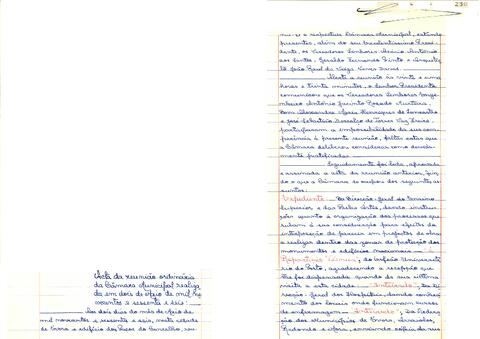 Acta da reunião ordinária
da Câmara Municipal realiza
da em dois de Maio de mil no
vecentos e sessenta e seis:
Aos dois dias do mês de Maio de
mil novecentos e sessenta e seis, nesta cidade
de Évora e edifício dos Paços do Concelho, reu-
230
niu-se a respectiva Câmara Municipal, estando
presentes, além do seu Excelentíssimo Presi-
dente, os Vereadores Senhores António
dos Santos, Geraldo Fernando Pinto e
João
Aberta a reunião às vinte e uma
horas e trinta minutos, o Senhor Presidente
comunicou que os Vereadores Senhores Enge-
nheiro António Jacinto
Dom Alexandre Henriques de Lencastre
e José Sebastião de Torres Vaz Freire,
participaram a impossibilidade da sua com-
parência à presente reunião, faltas estas que
a Câmara deliberou considerar como devida-
mente justificadas.
Seguidamente foi lida, aprovada
e assinada a acta da reunião anterior, fin-
do o que a Câmara se ocupou dos seguintes as-
suntos:
Expediente. Da Direcção-Geral do Ensino
Superior e das Belas Artes, dando instru-
ções quanto à organização dos processos que
subam à sua consideração para efeitos de
interposição de parecer em projectos de obras
a realizar dentro das zonas de protecção dos
monumentos e edifícios nacionais.
Repartição Técnica; do Orfeão Universitá-
rio do Porto, agradecendo a recepção que
lhe foi dispensada quando da sua última
visita a esta cidade. "Inteirado"; Da Di-
recção-Geral dos Hospitais, dando conheci-
mento dos locais onde funcionam cursos
de enfermagem. "Inteirado"; Da Federa-
ção dos Municípios de Évora, Arraiolos,
Redondo e Mora, enviando cópia da reu-